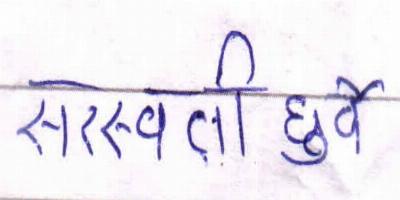 सरस्वती धुर्वे